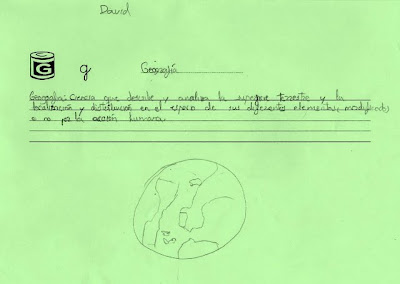 David
G g Geografía
Geografía: Ciencia que describe y analiza la superficie terrestre y la
localización y distribución en el espacio de sus diferentes elementos (modificados
o no por la acción humana